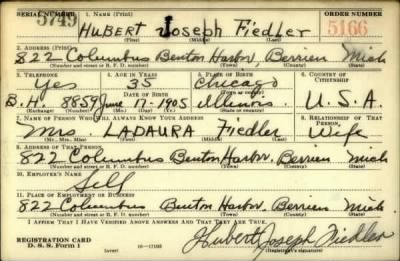 SERIAL NUMBER 1. NAME (Print) ORDER NUMBER
5749 HUBERT Joseph Fiedler 5166
(First) (Middle) (Last)
2. ADDRESS (Print)
822 Columbus Benton Harbor, Berrien Mich
(Number and street or R. F. D. number) (Town) (County) (State)
3. TELEPHONE 4. AGE IN YEARS 5. PLACE OF BIRTH 6. COUNTRY OF CITIZENSHIP
Yes 35 Chicago
DATE OF BIRTH (Town or county)
B.H. 8859 June 17-1905 Illinois U.S.A.
(Exchange) (Number) (Mo.) (Day) (Yr.) (State or country)
7. NAME OF PERSON WHO WILL ALWAYS KNOW YOUR ADDRESS 8. RELATIONSHIP OF THAT PERSON
Mrs. LADAURA Fiedler Wife
(Mr., Mrs., Miss) (First) (Middle) (Last)
9. ADDRESS OF THAT PERSON
822 Columbus Benton Harbor, Berrien Mich
(Number and street or R. F. D. number) (Town) (County) (State)
10. EMPLOYER'S NAME
Self
11. PLACE OF EMPLOYMENT OR BUSINESS
822 Columbus Benton Harbor, Berrien Mich.
(Number and street or R. F. D. number) (Town) (County) (State)
I AFFIRM THAT I HAVE VERIFIED ABOVE ANSWERS AND THAT THEY ARE TRUE.
REGISTRATION CARD
D. S. S. Form 1 Hubert Joseph Fiedler